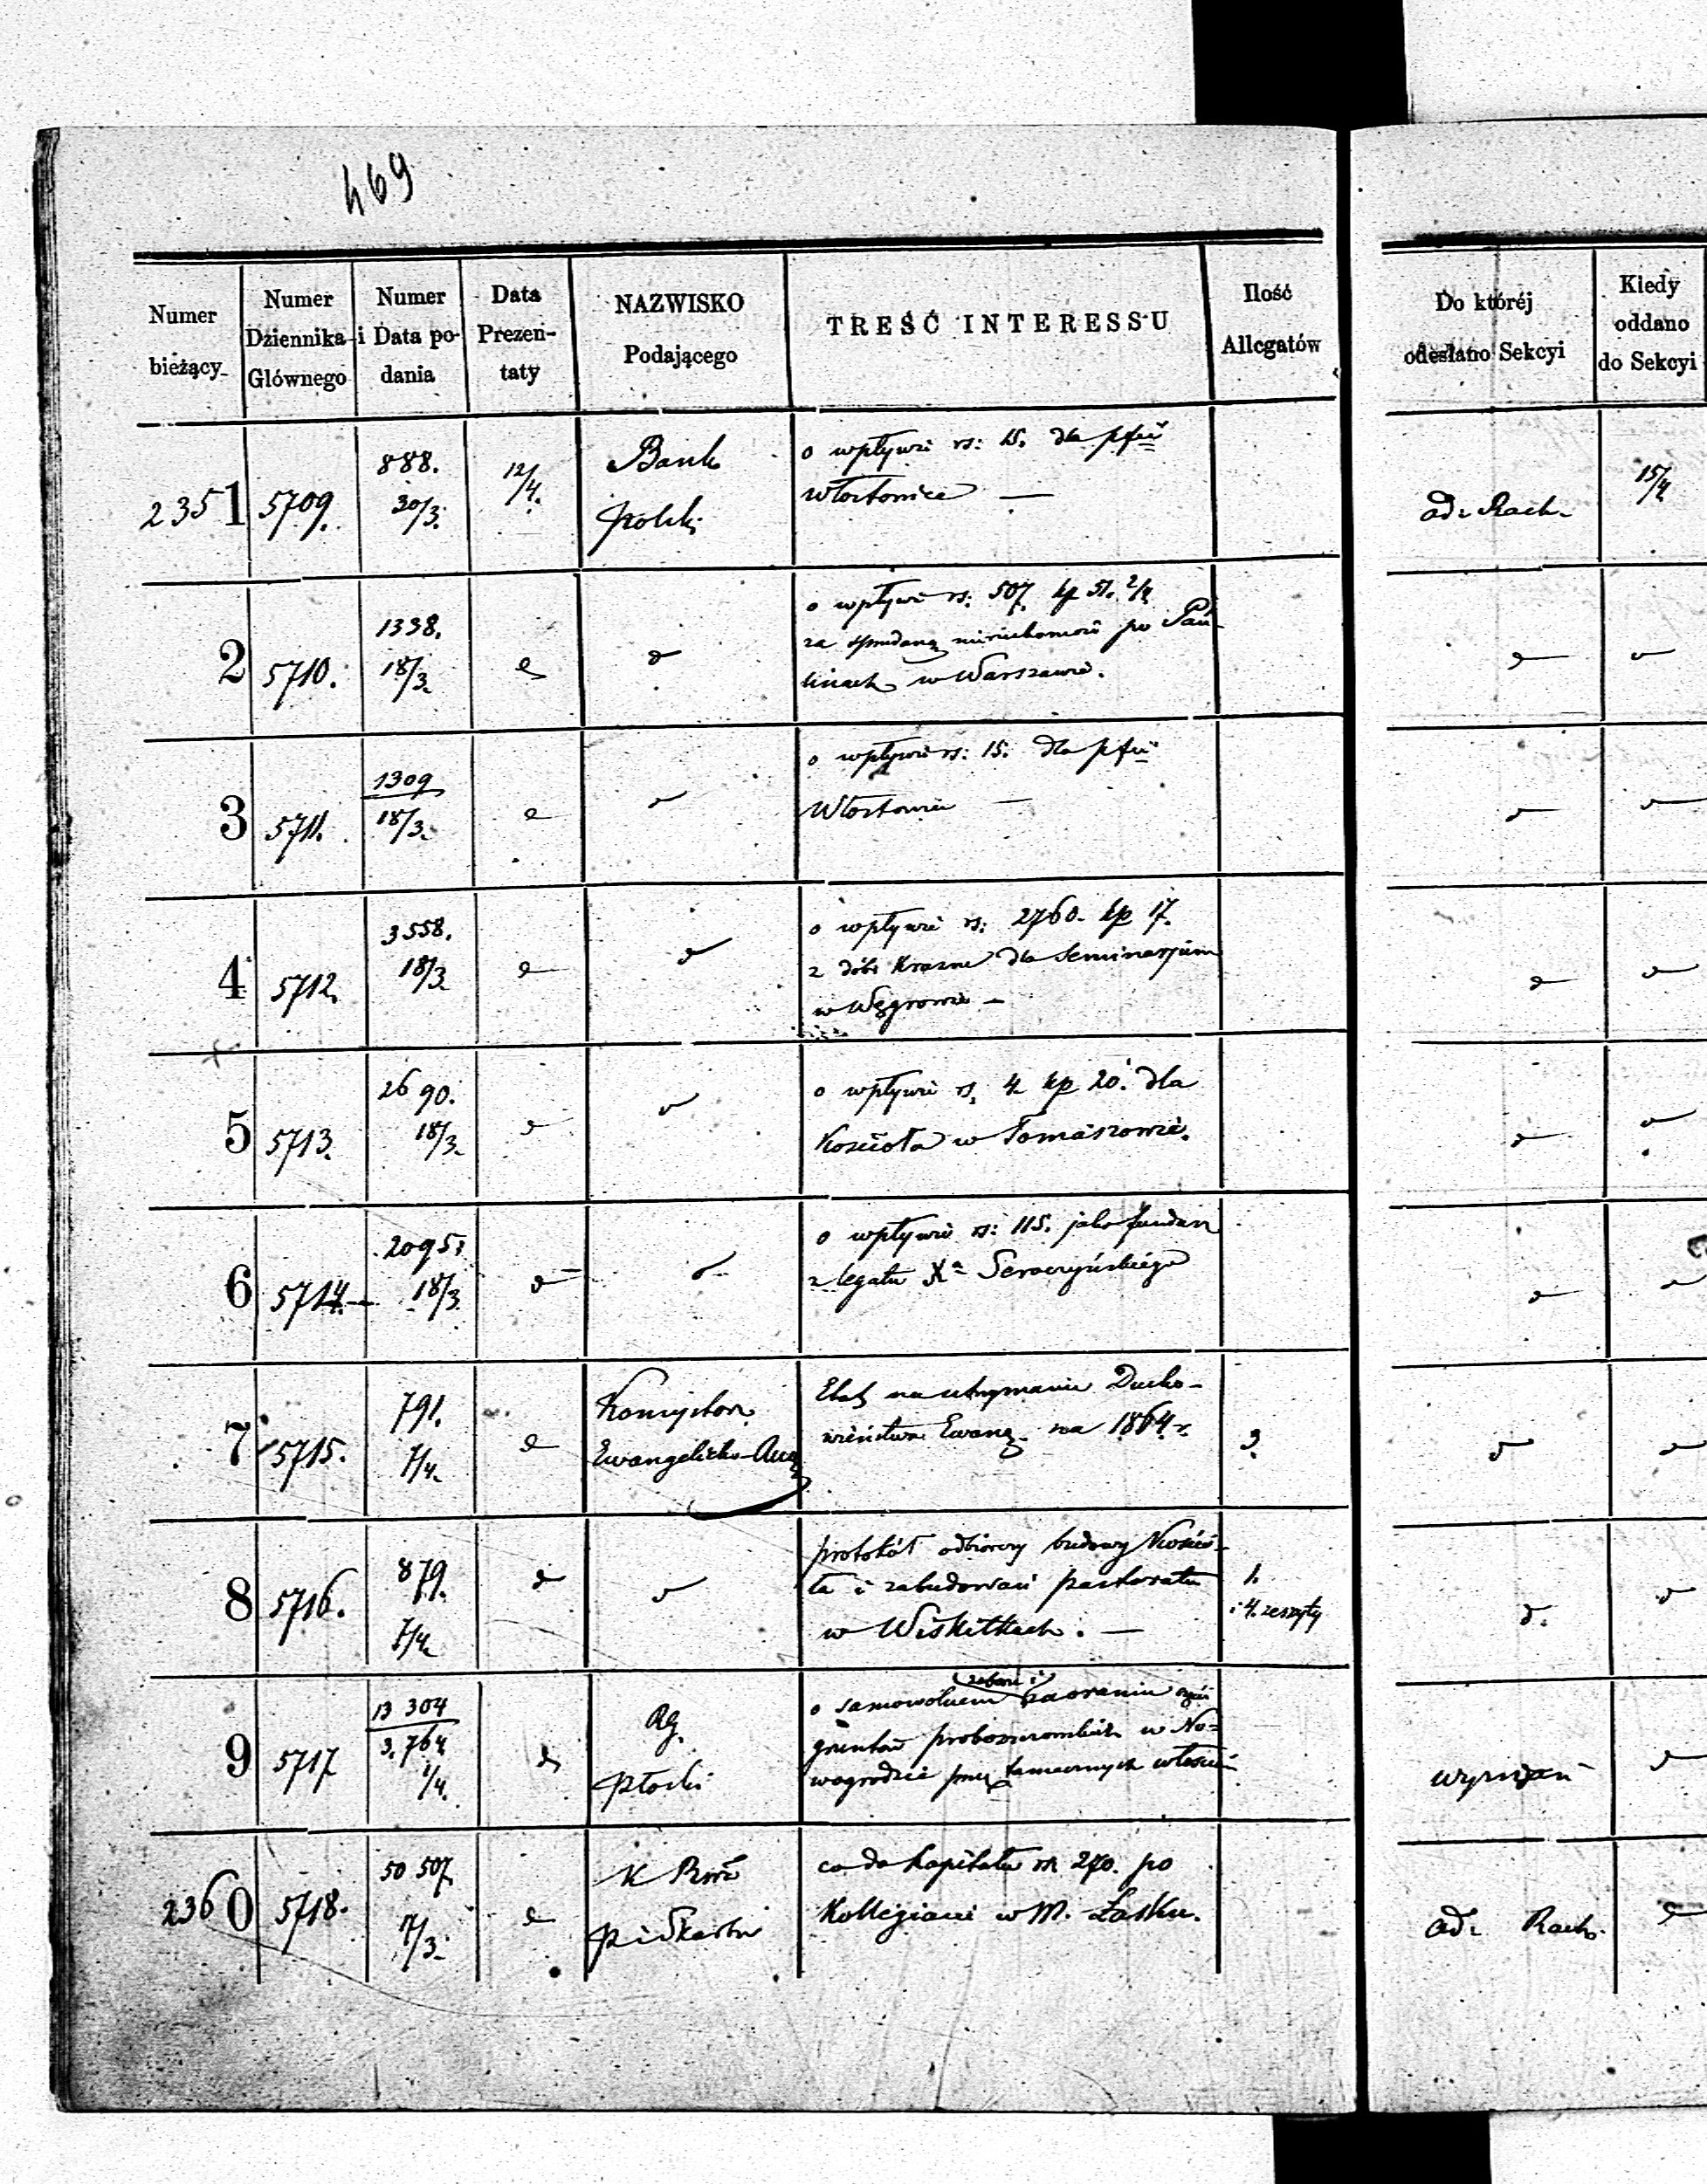 469
Numer bieżący
Numer Dziennika Głównego
Numer i Data podania
Data Prezentaty
NAZWISKO Podającego
TREŚĆ INTERESSU
Ilość Allegatów
Do któréj odesłano Sekcyi
Kiedy oddano do Sekcyi
2351 5709. 888. 30/3. 12/4. Bank Polski
o wpływie rs: 15. dla
ad: Rach. 15/4
2 5710. 1338. 18/3.
o wpływie rs: 507. kp 51. 2/4
za sprzedaną nieruchomość po Pau-
linach w Warszawie.
3 5711. 1309 18/3.
o wpływie rs: 15. dla
4 5712. 3558. 18/3
o wpływie rs: 2760. kp 17.
z dóbr Krasne dla Seminarjum
w Węgrowie –
5 5713. 2690. 18/3.
o wpływie rs. 4 kp 20. dla
Kościoła w Tomaszowie.
6 5714. 2095. 18/3
o wpływie rs: 115. jako fundusz
z legatu Xa
7 5715. 791. 7/4. Konsystorz
Ewangelicko-Aug
Etat na utrzymanie Ducho-
wieństwa Ewang. na 1864 r.
3.
8 5716. 879. 7/4.
protokół odbiorczy budowy Kościo-
ła i zabudowań pastoratu
w Wiskitkach. –
1.
i 4. zeszyty
d.
9 5717 13 304 3.764 1/4. RG. Płocki
o samowolnem zaoraniu
gruntów proboszczowskich w No-
wogrodzie przez tamecznych włościan
wyznań
2360 5718. 50 507 7/3.
co do kapitału rs 270. po
Kollegiacie w M. Łasku.
ad: Rach.